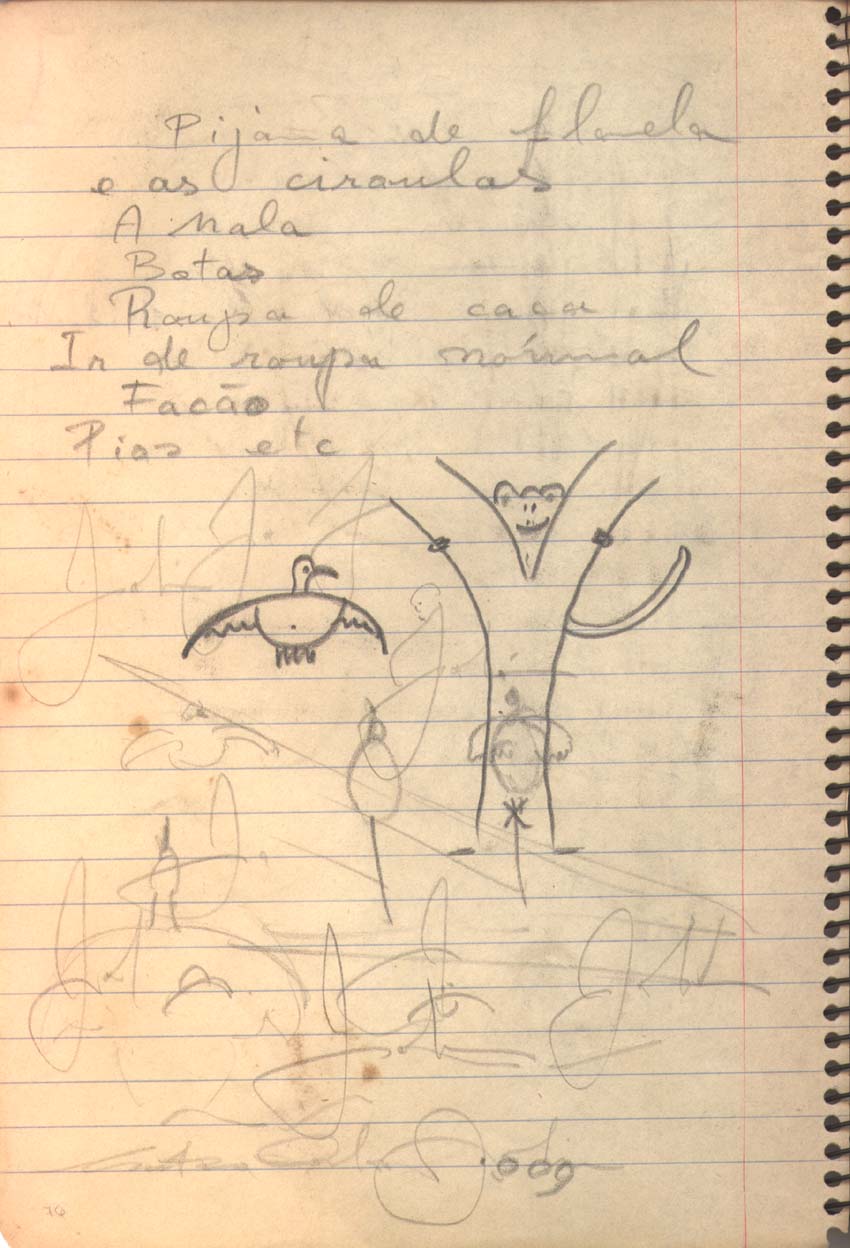 Pijama de flanela
e as ciroulas
A mala
Botas
Roupa de caca
Ir de roupa nórmal
Facão
Pios etc
76